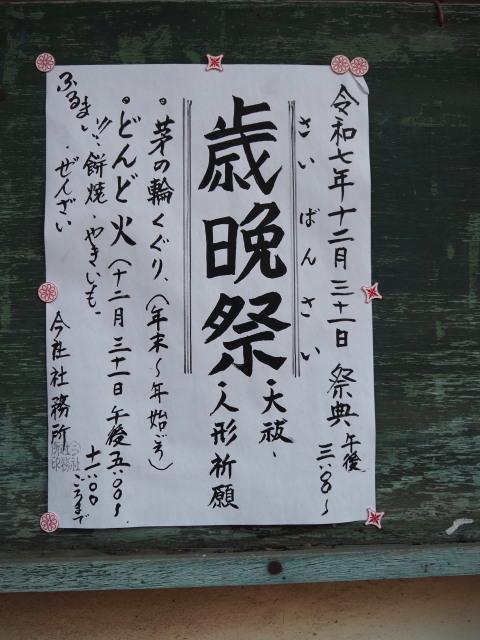 令和七年十二月三十一日 祭典 午後三:〇〇～
さいばんさい
歳晩祭
・大祓
・人形祈願
・茅の輪くぐり、(年末～年始ごろ)
・どんど火(十二月三十一日午後五:〇〇～
十一:〇〇ごろまで
ふるまい…餅焼・やきいも・
・ぜんざい
今社社務所